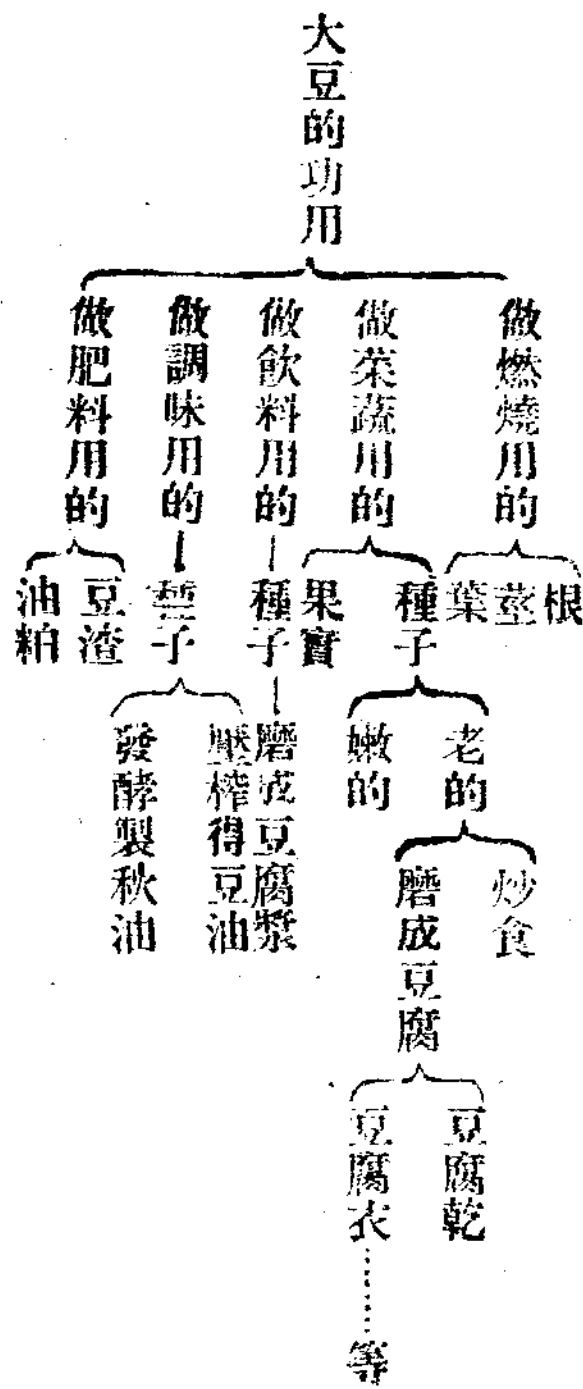 大豆的功用
做燃燒用的
根
莖
葉
做菜蔬用的
種子
老的
炒食
磨成豆腐
豆腐乾
豆腐衣……等
嫩的
果實
做飲料用的
種子
磨成豆腐漿
做調味用的
種子
壓榨得豆油
發酵製秋油
做肥料用的
豆渣
油粕